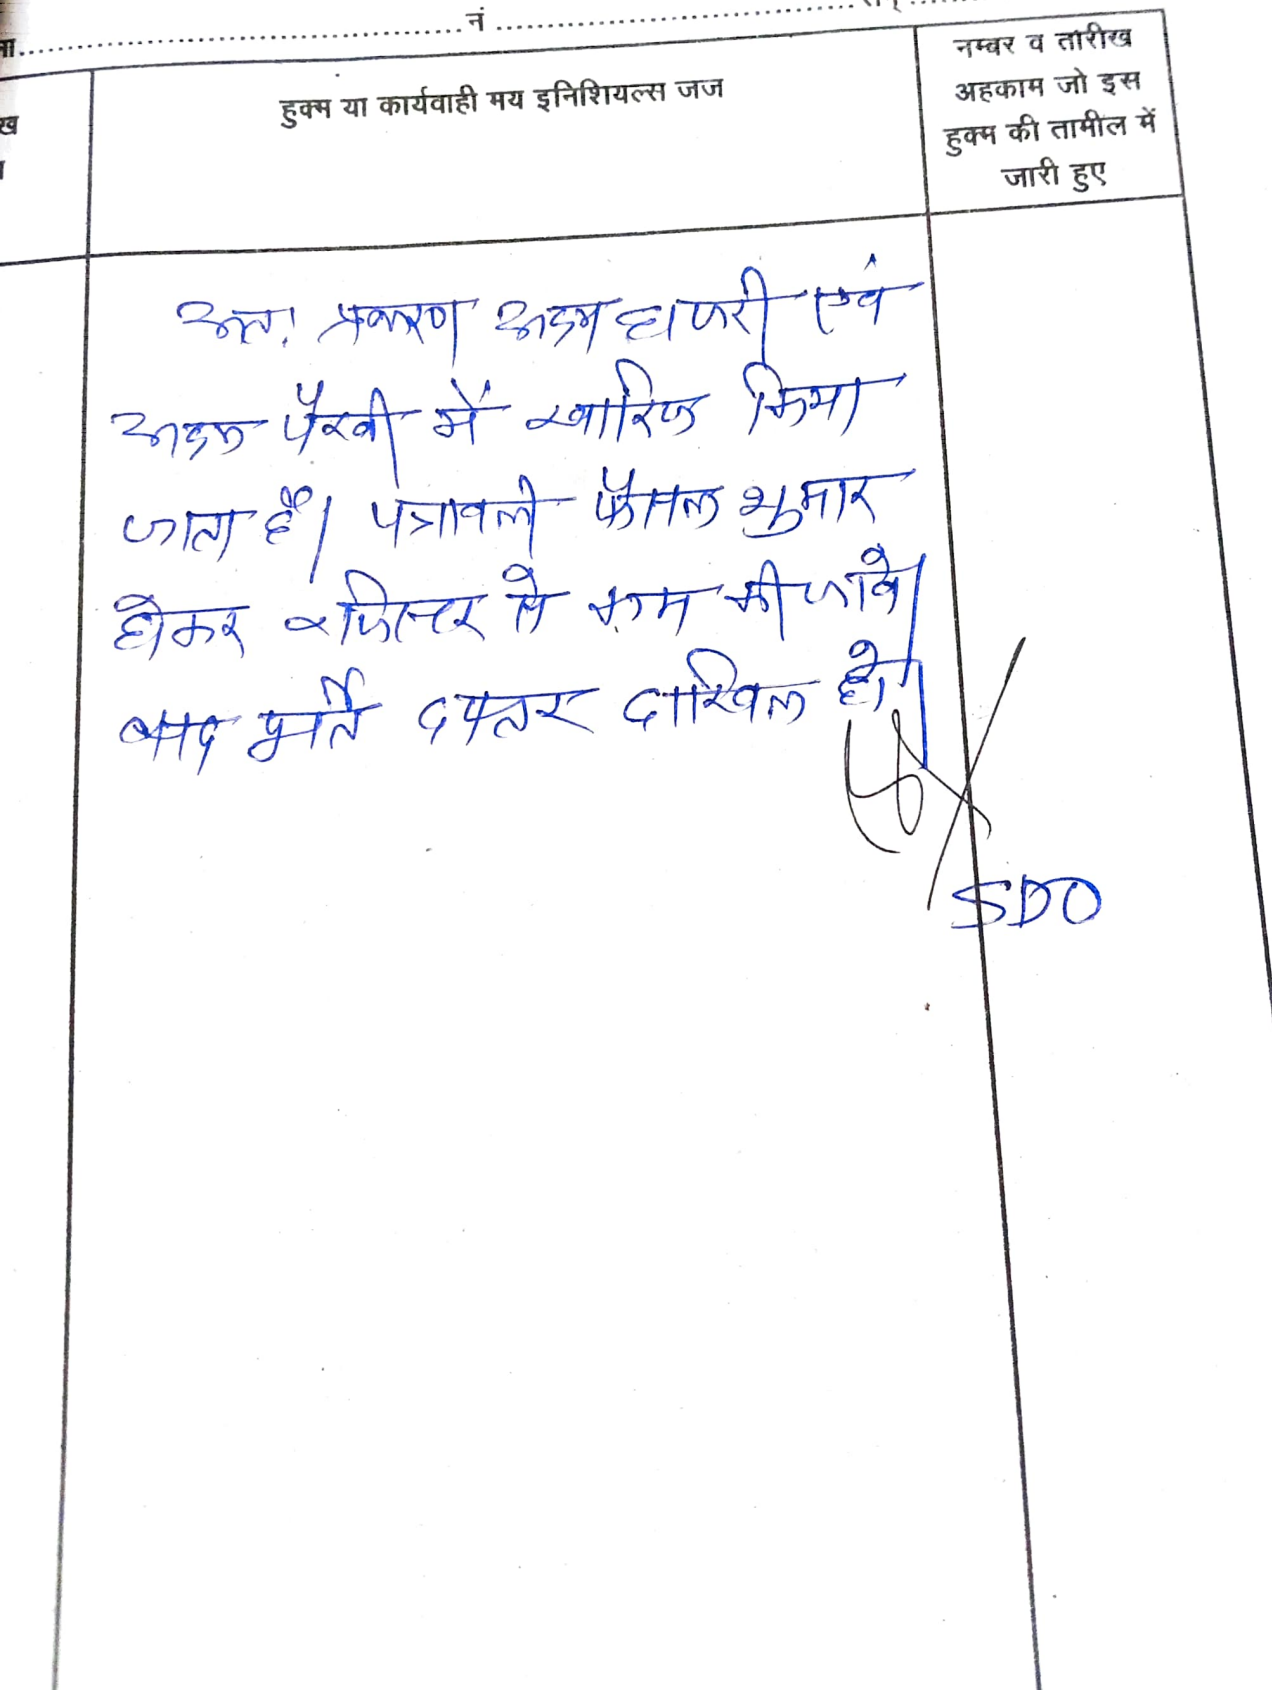 नं
हुक्म या कार्यवाही मय इनिशियल्स जज
नम्बर व तारीख
अहकाम जो इस
हुक्म की तामील में
जारी हुए
अतः प्रकरण अदम हाजरी एवं
अदम पैरवी में खारिज किया
जाता है। पत्रावली फैसल शुमार
होकर रजिस्टर से कम की जावे।
बाद पूर्ति दफ्तर दाखिल हो।
SDO